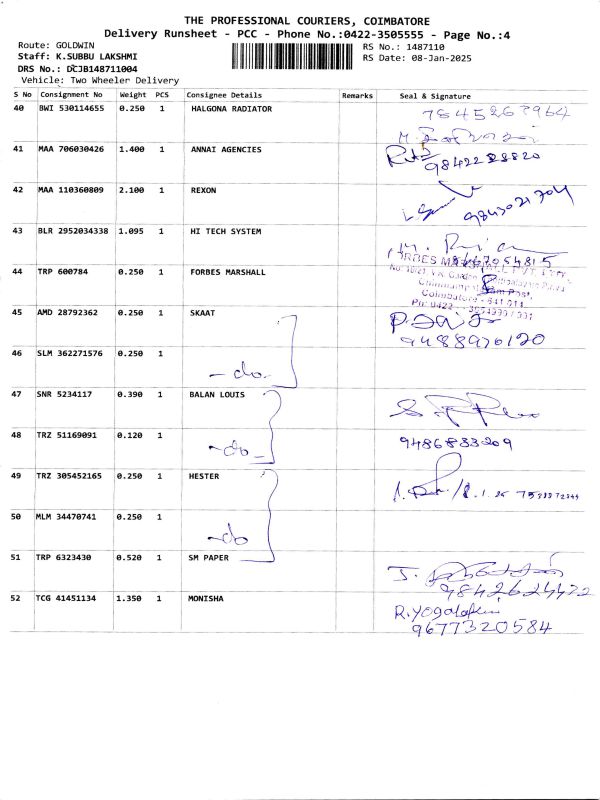 THE PROFESSIONAL COURIERS, COIMBATORE
Delivery Runsheet - PCC - Phone No.:0422-3505555 - Page No.:4
Route: GOLDWIN
RS No.: 1487110
Staff: K.SUBBU LAKSHMI
RS Date: 08-Jan-2025
DRS No.: DCJB148711004
Vehicle: Two Wheeler Delivery
S No Consignment No Weight PCS Consignee Details Remarks Seal & Signature
40 BWI 530114655 0.250 1 HALGONA RADIATOR
41 MAA 706030426 1.400 1 ANNAI AGENCIES
9842228820
42 MAA 110360809 2.100 1 REXON
43 BLR 2952034338 1.095 1 HI TECH SYSTEM
44 TRP 600784 0.250 1 FORBES MARSHALL
Coimbatore - 641 014
45 AMD 28792362 0.250 1 SKAAT
9488976120
46 SLM 362271576 0.250 1 -do-
47 SNR 5234117 0.390 1 BALAN LOUIS
48 TRZ 51169091 0.120 1 -do- 9486833209
49 TRZ 305452165 0.250 1 HESTER
50 MLM 34470741 0.250 1 -do
51 TRP 6323430 0.520 1 SM PAPER
9842624422
52 TCG 41451134 1.350 1 MONISHA
9677320584